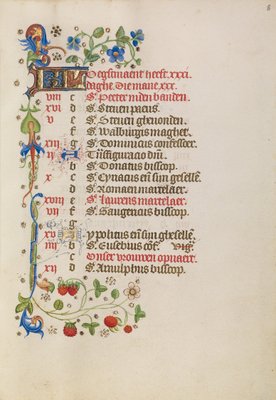 8
Oegstmaent heeft xxxi
daghe Die mane xxx
viii c S. Peeter inden banden
xvi d S. Steuen paeus
v e S. Steuen ghevonden
f S. Walburgis maghet
xiii g S. Dominicus confessoer
ii A Transfiguracio dni
b S. Donatus bisscop
x c S. Cyriacus en sijn gheselle
d S. Romaen martelaer
xviii e S. Laurens martelaer
vii f S. Gaugericus bisscop
g
xv Ypolitus en sijn gheselle
iiii b S. Eusebius cof. Vig
c Onser vrouwen opuaert
xii d S. Arnulphus bisscop